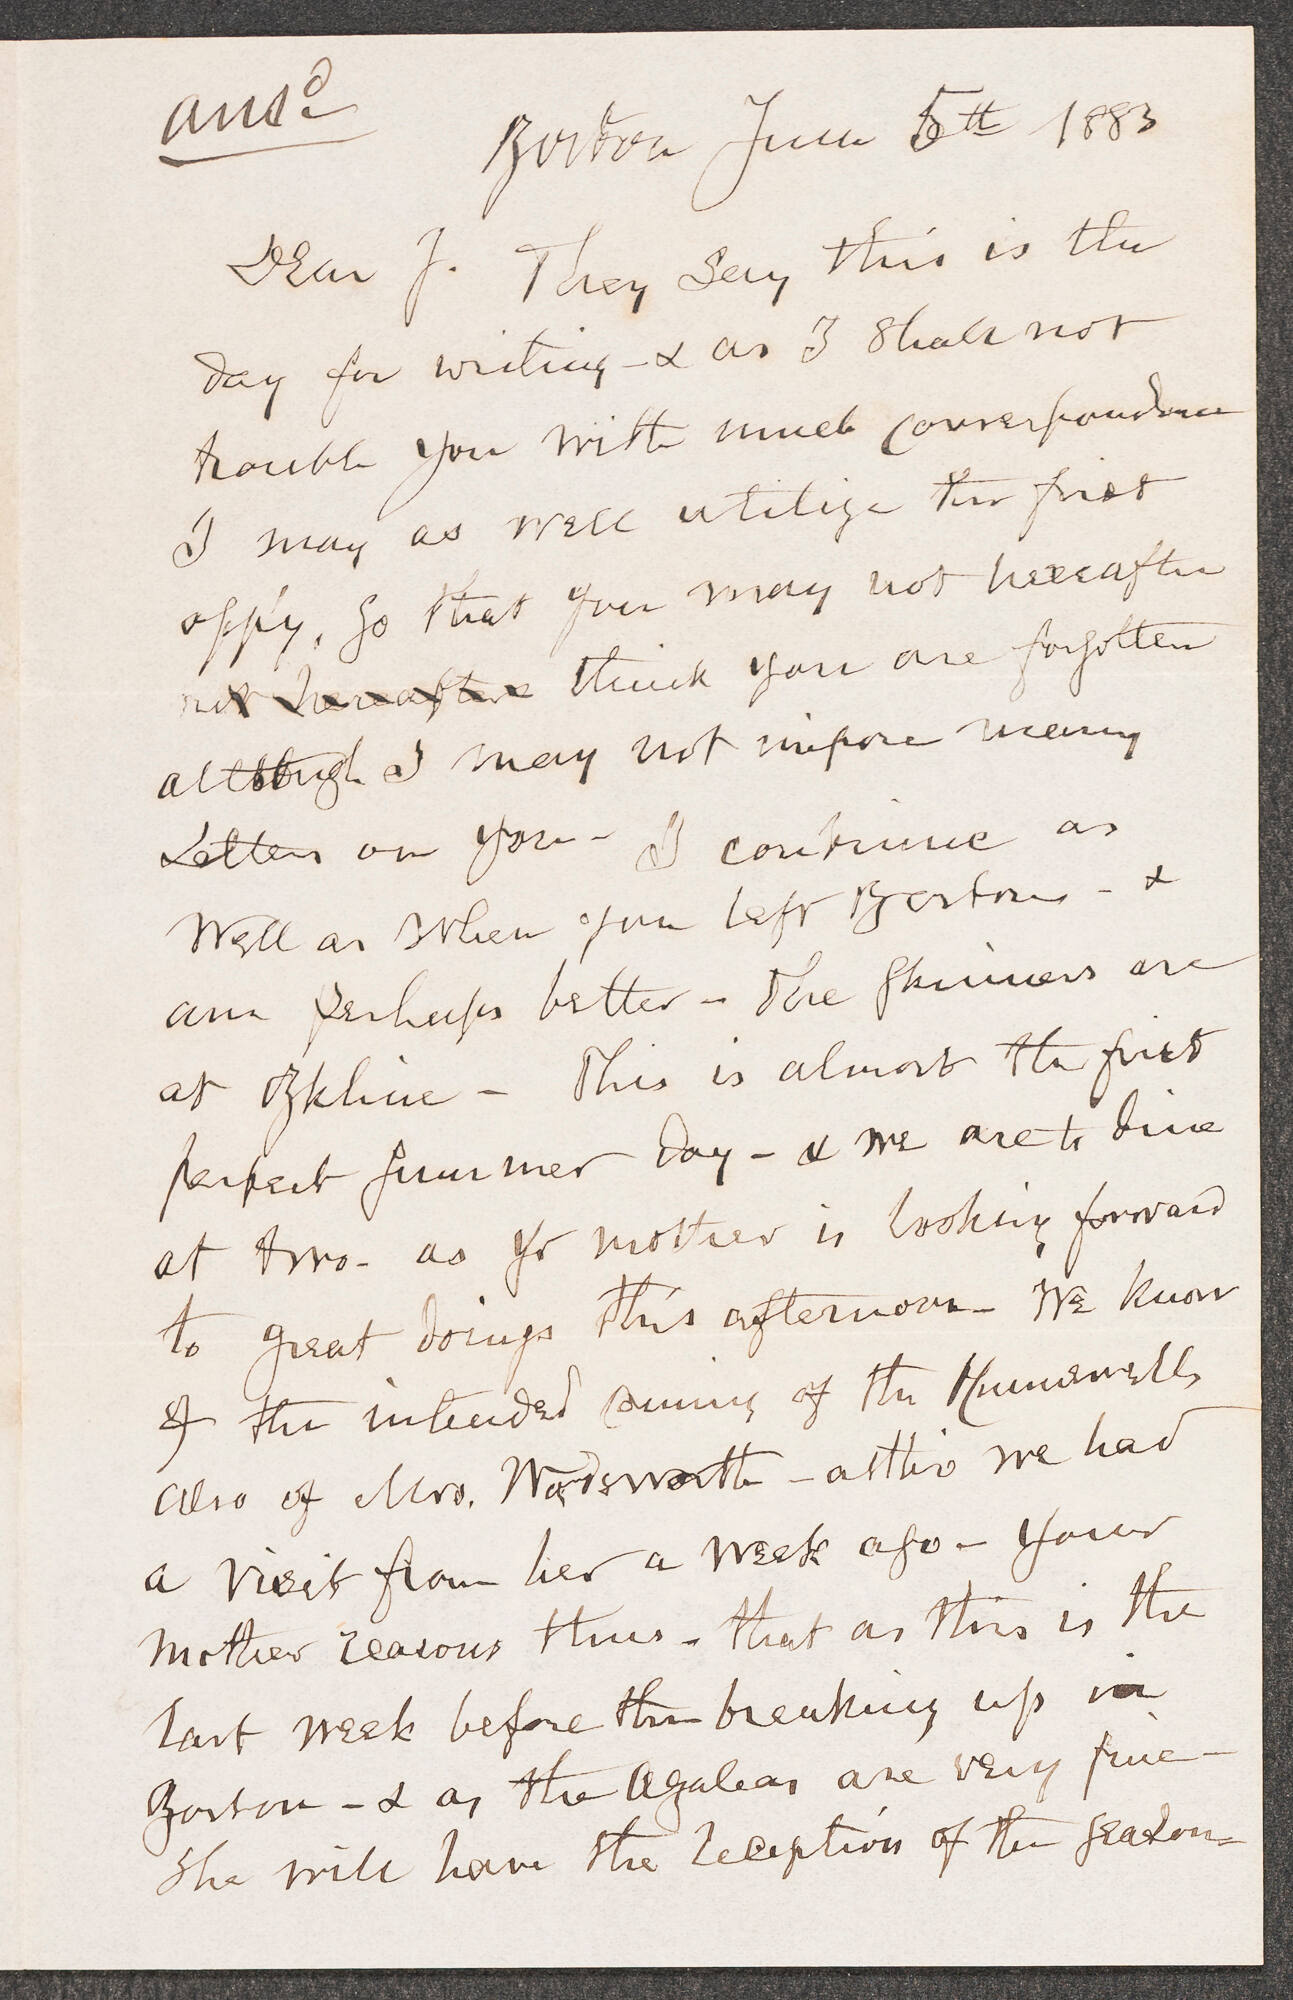 ansd
Boston June 5th 1883
Dear J. They say this is the
day for writing - & as I shall not
trouble you with much correspondence
I may as well utilize this first
oppy, so that you may not hereafter
not hereafter think you are forgotten
although I may not impose many
Letters on you - I continue as
well as when you left Boston - &
am perhaps better - The Skinners are
at Bkline - This is almost the first
perfect summer day - & we are to dine
at two - as yr mother is looking forward
to great doings this afternoon - We know
of the intended coming of the Hunnewells
also of Mrs. Wordsworth - altho we had
a visit from her a week ago - Your
mother reasons thus - that as this is the
last week before the breaking up in
Boston - & as the Azaleas are very fine -
She will have the reception of the season -